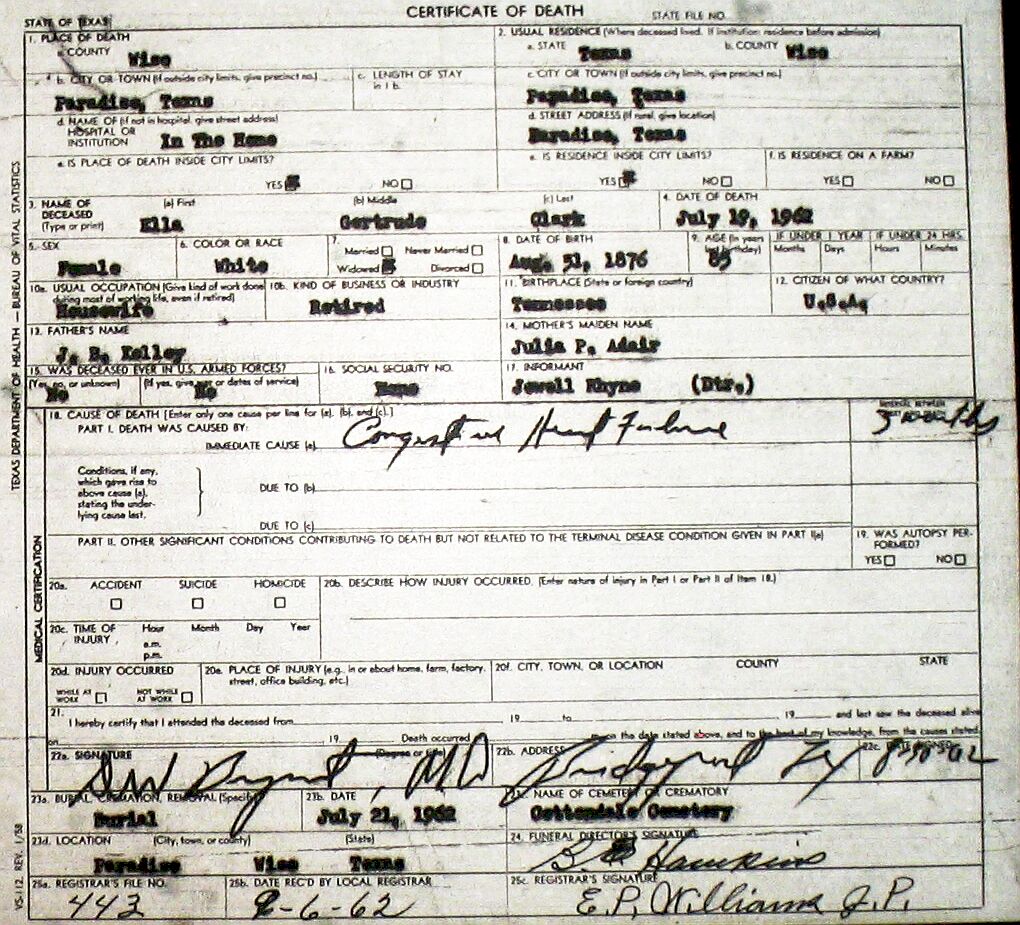 CERTIFICATE OF DEATH
STATE OF TEXAS
STATE FILE NO.
1. PLACE OF DEATH
a. COUNTY
Wise
2. USUAL RESIDENCE (Where deceased lived. If institution: residence before admission)
a. STATE Texas b. COUNTY Wise
b. CITY OR TOWN (If outside city limits, give precinct no.)
Paradise, Texas
c. LENGTH OF STAY
in 1 b.
c. CITY OR TOWN (If outside city limits, give precinct no.)
Paradise, Texas
d. NAME OF (If not in hospital, give street address)
HOSPITAL OR
INSTITUTION In The Home
d. STREET ADDRESS (If rural, give location)
Paradise, Texas
e. IS PLACE OF DEATH INSIDE CITY LIMITS?
YES NO
e. IS RESIDENCE INSIDE CITY LIMITS?
YES NO
f. IS RESIDENCE ON A FARM?
YES NO
3. NAME OF
DECEASED
(Type or print)
(a) First (b) Middle (c) Last
Ella Gertrude Clark
4. DATE OF DEATH
July 19, 1962
5. SEX
Female
6. COLOR OR RACE
White
7.
Married Never Married
Widowed Divorced
8. DATE OF BIRTH
Aug. 31, 1876
9. AGE (In years
last birthday)
85
IF UNDER 1 YEAR IF UNDER 24 HRS.
Months Days Hours Minutes
10a. USUAL OCCUPATION (Give kind of work done
during most of working life, even if retired)
Housewife
10b. KIND OF BUSINESS OR INDUSTRY
Retired
11. BIRTHPLACE (State or foreign country)
Tennessee
12. CITIZEN OF WHAT COUNTRY?
U.S.A.
13. FATHER'S NAME
J. B. Kelley
14. MOTHER'S MAIDEN NAME
Julia P. Adair
15. WAS DECEASED EVER IN U.S. ARMED FORCES?
(Yes, no, or unknown) (If yes, give war or dates of service)
No No
16. SOCIAL SECURITY NO.
None
17. INFORMANT
Jewell Rhyne (Dtr.)
18. CAUSE OF DEATH [Enter only one cause per line for (a), (b), and (c).]
PART I. DEATH WAS CAUSED BY:
IMMEDIATE CAUSE (a) Congestive Heart Failure
INTERVAL BETWEEN
3 months
Conditions, if any,
which gave rise to
above cause (a),
stating the under-
lying cause last.
DUE TO (b)
DUE TO (c)
PART II. OTHER SIGNIFICANT CONDITIONS CONTRIBUTING TO DEATH BUT NOT RELATED TO THE TERMINAL DISEASE CONDITION GIVEN IN PART I(a)
19. WAS AUTOPSY PER-
FORMED?
YES NO
20a. ACCIDENT SUICIDE HOMICIDE
20b. DESCRIBE HOW INJURY OCCURRED. (Enter nature of injury in Part I or Part II of Item 18.)
20c. TIME OF
INJURY
Hour Month Day Year
a.m.
p.m.
20d. INJURY OCCURRED
WHILE AT
WORK
NOT WHILE
AT WORK
20e. PLACE OF INJURY (e.g., in or about home, farm, factory,
street, office building, etc.)
20f. CITY, TOWN, OR LOCATION COUNTY STATE
21.
I hereby certify that I attended the deceased from 19 to 19 and last saw the deceased alive
on 19 Death occurred m on the date stated above, and to the best of my knowledge, from the causes stated.
22a. SIGNATURE (Degree or title)
Bryant, MD
22b. ADDRESS
Bridgeport Tex
22c. DATE SIGNED
23a. BURIAL, CREMATION, REMOVAL (Specify)
Burial
23b. DATE
July 21, 1962
23c. NAME OF CEMETERY OR CREMATORY
Cottondale Cemetery
23d. LOCATION (City, town, or county) (State)
Paradise Wise Texas
24. FUNERAL DIRECTOR'S SIGNATURE
Hawkins
25a. REGISTRAR'S FILE NO.
443
25b. DATE REC'D BY LOCAL REGISTRAR
8-6-62
25c. REGISTRAR'S SIGNATURE
E.P. Williams J.P.
TEXAS DEPARTMENT OF HEALTH — BUREAU OF VITAL STATISTICS
MEDICAL CERTIFICATION
VS-112 REV. 1/58